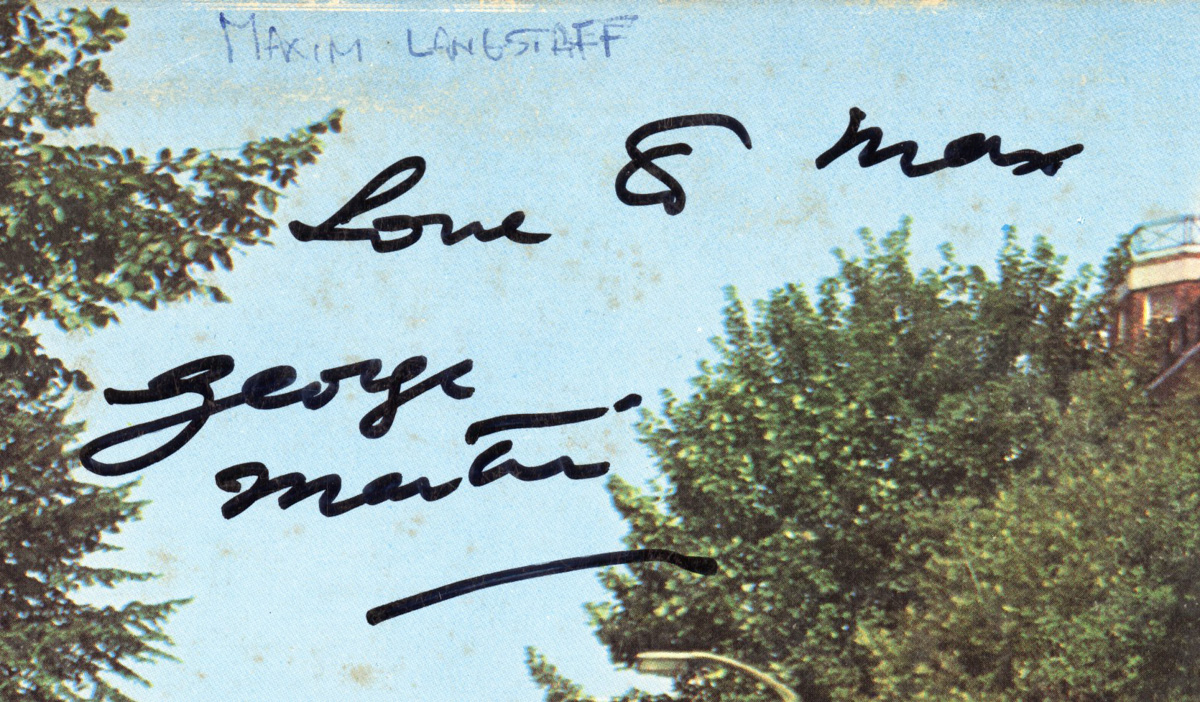 MAXIM LANGSTAFF
Love to Max
George
Martin